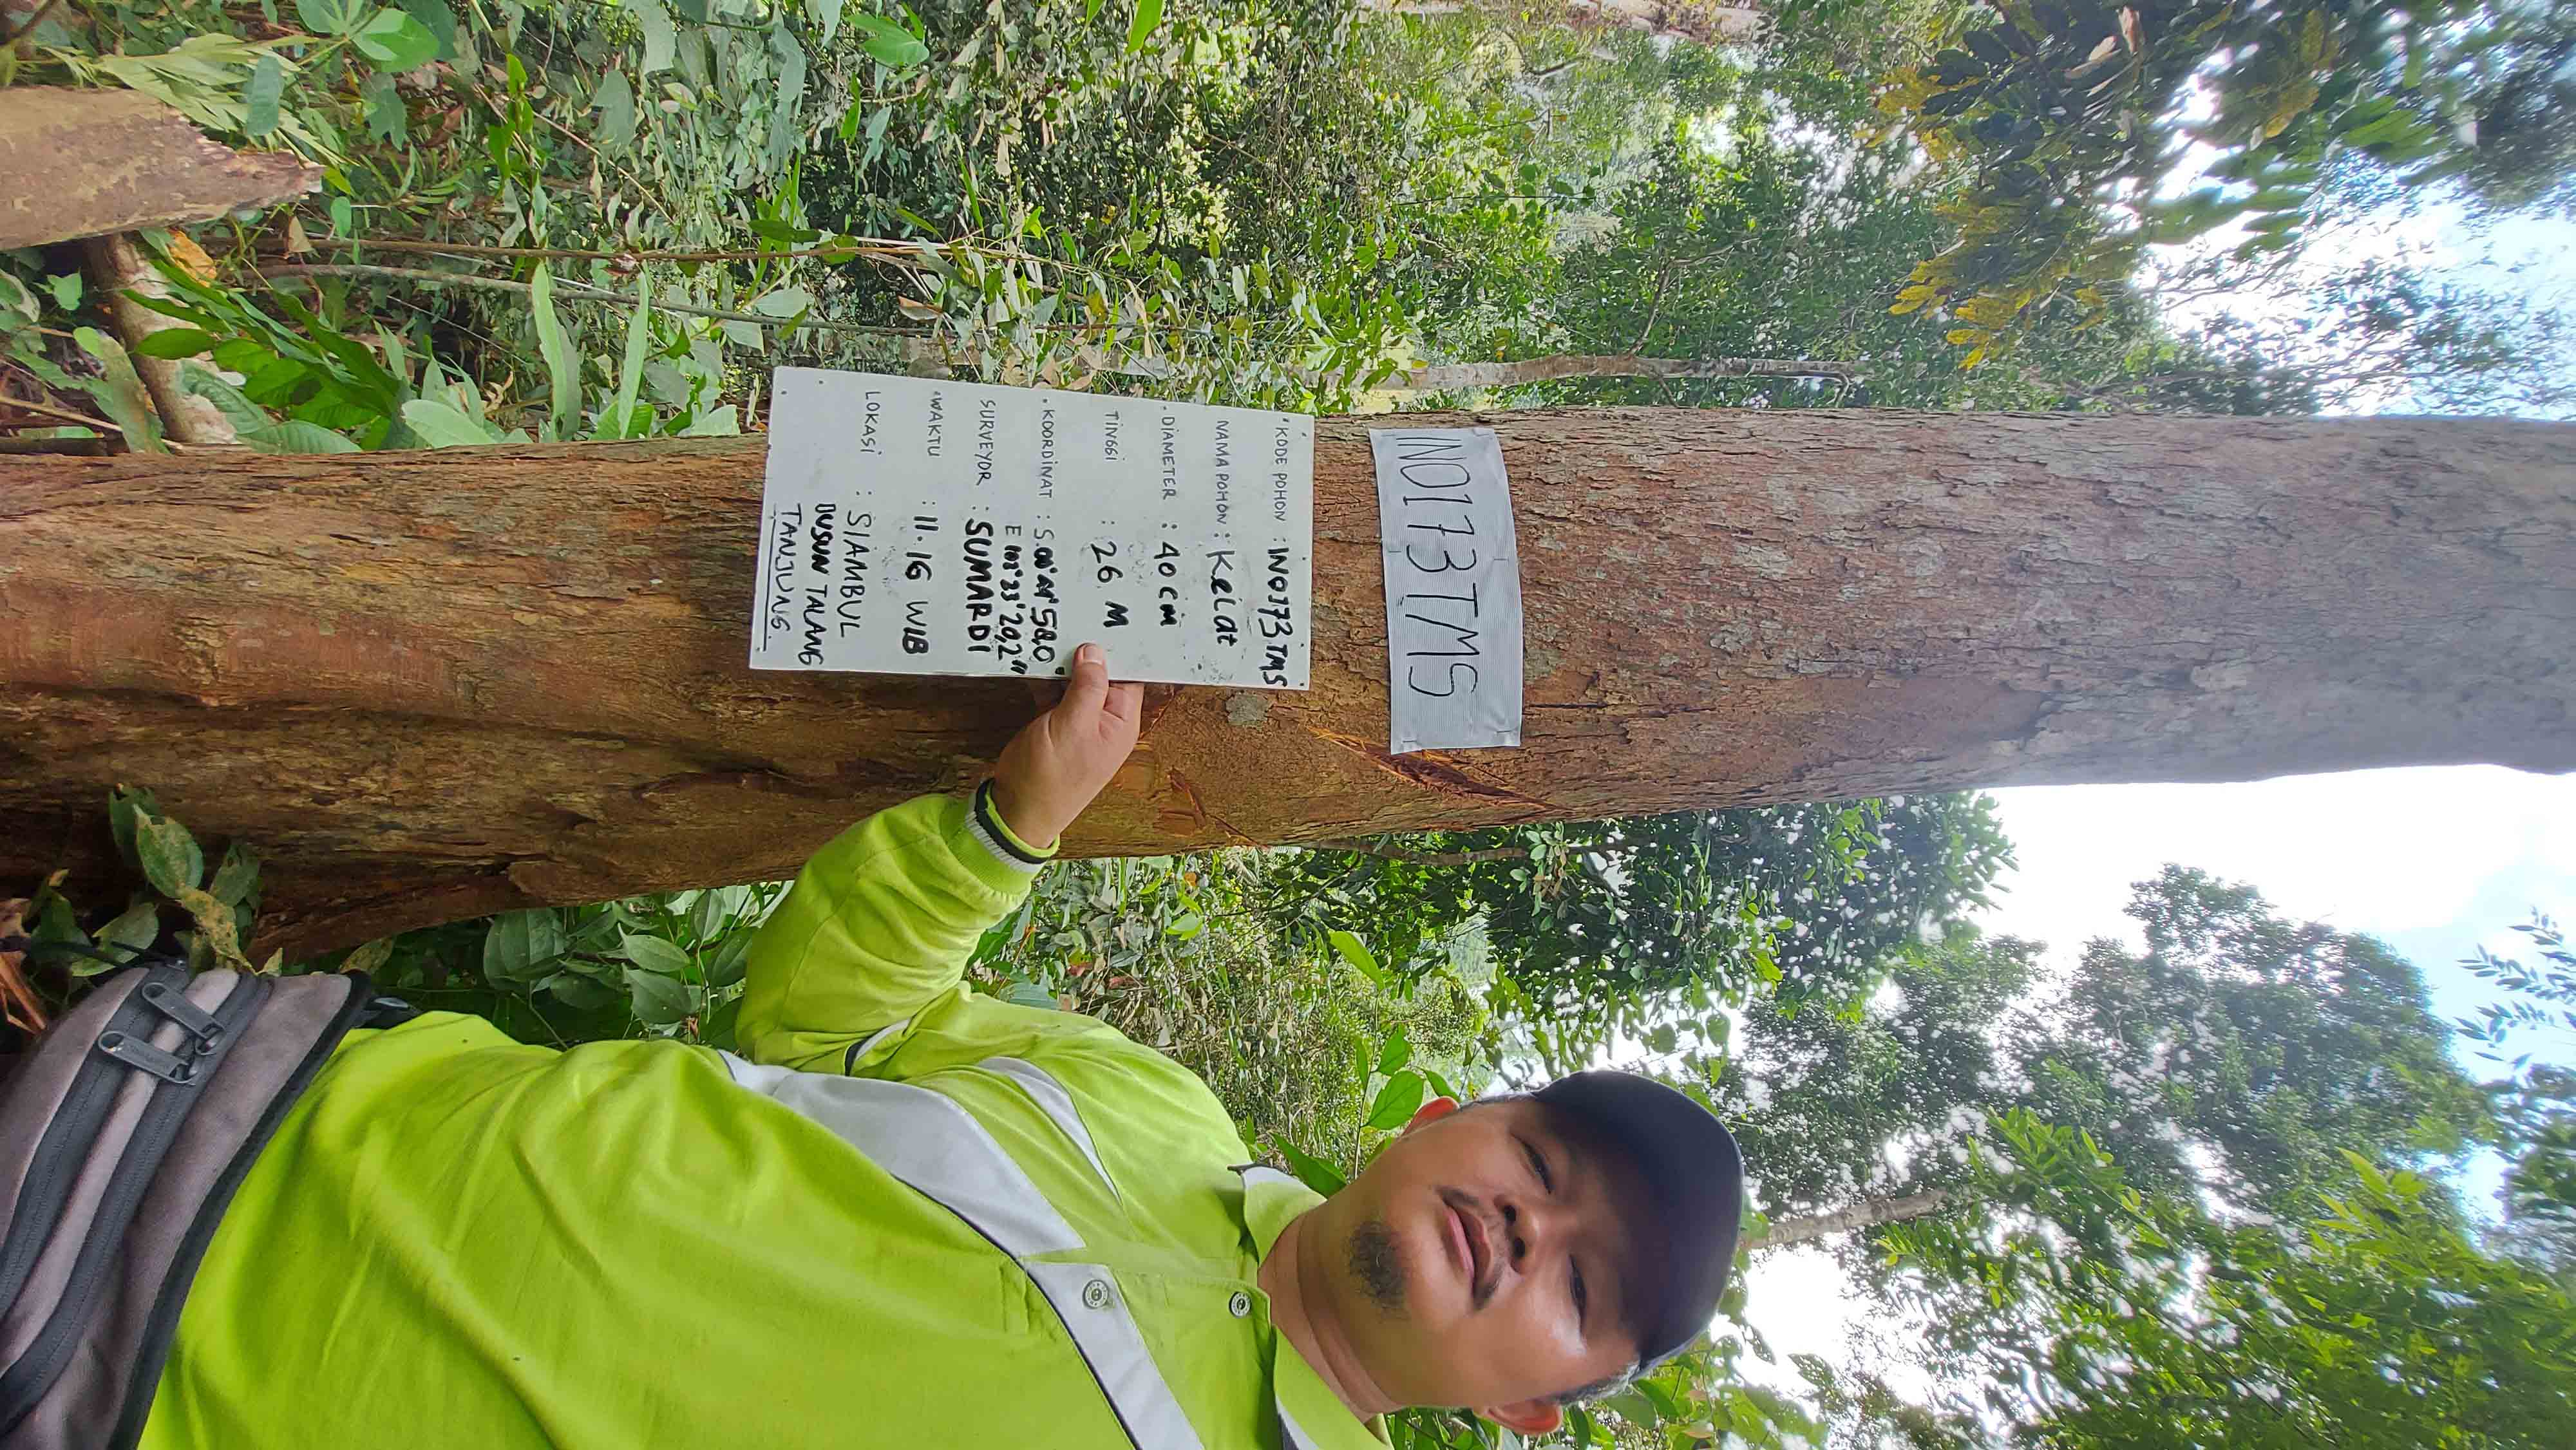 IN0173TMS
KODE POHON : IN0173 TMS
NAMA POHON : Kelat
DIAMETER : 40 CM
TINGGI : 26 M
KOORDINAT : S. 58,0
E 20,2"
SURVEYOR : SUMARDI
WAKTU : 11.16 WIB
LOKASI : SIAMBUL
DUSUN TALANG
TANJUNG.